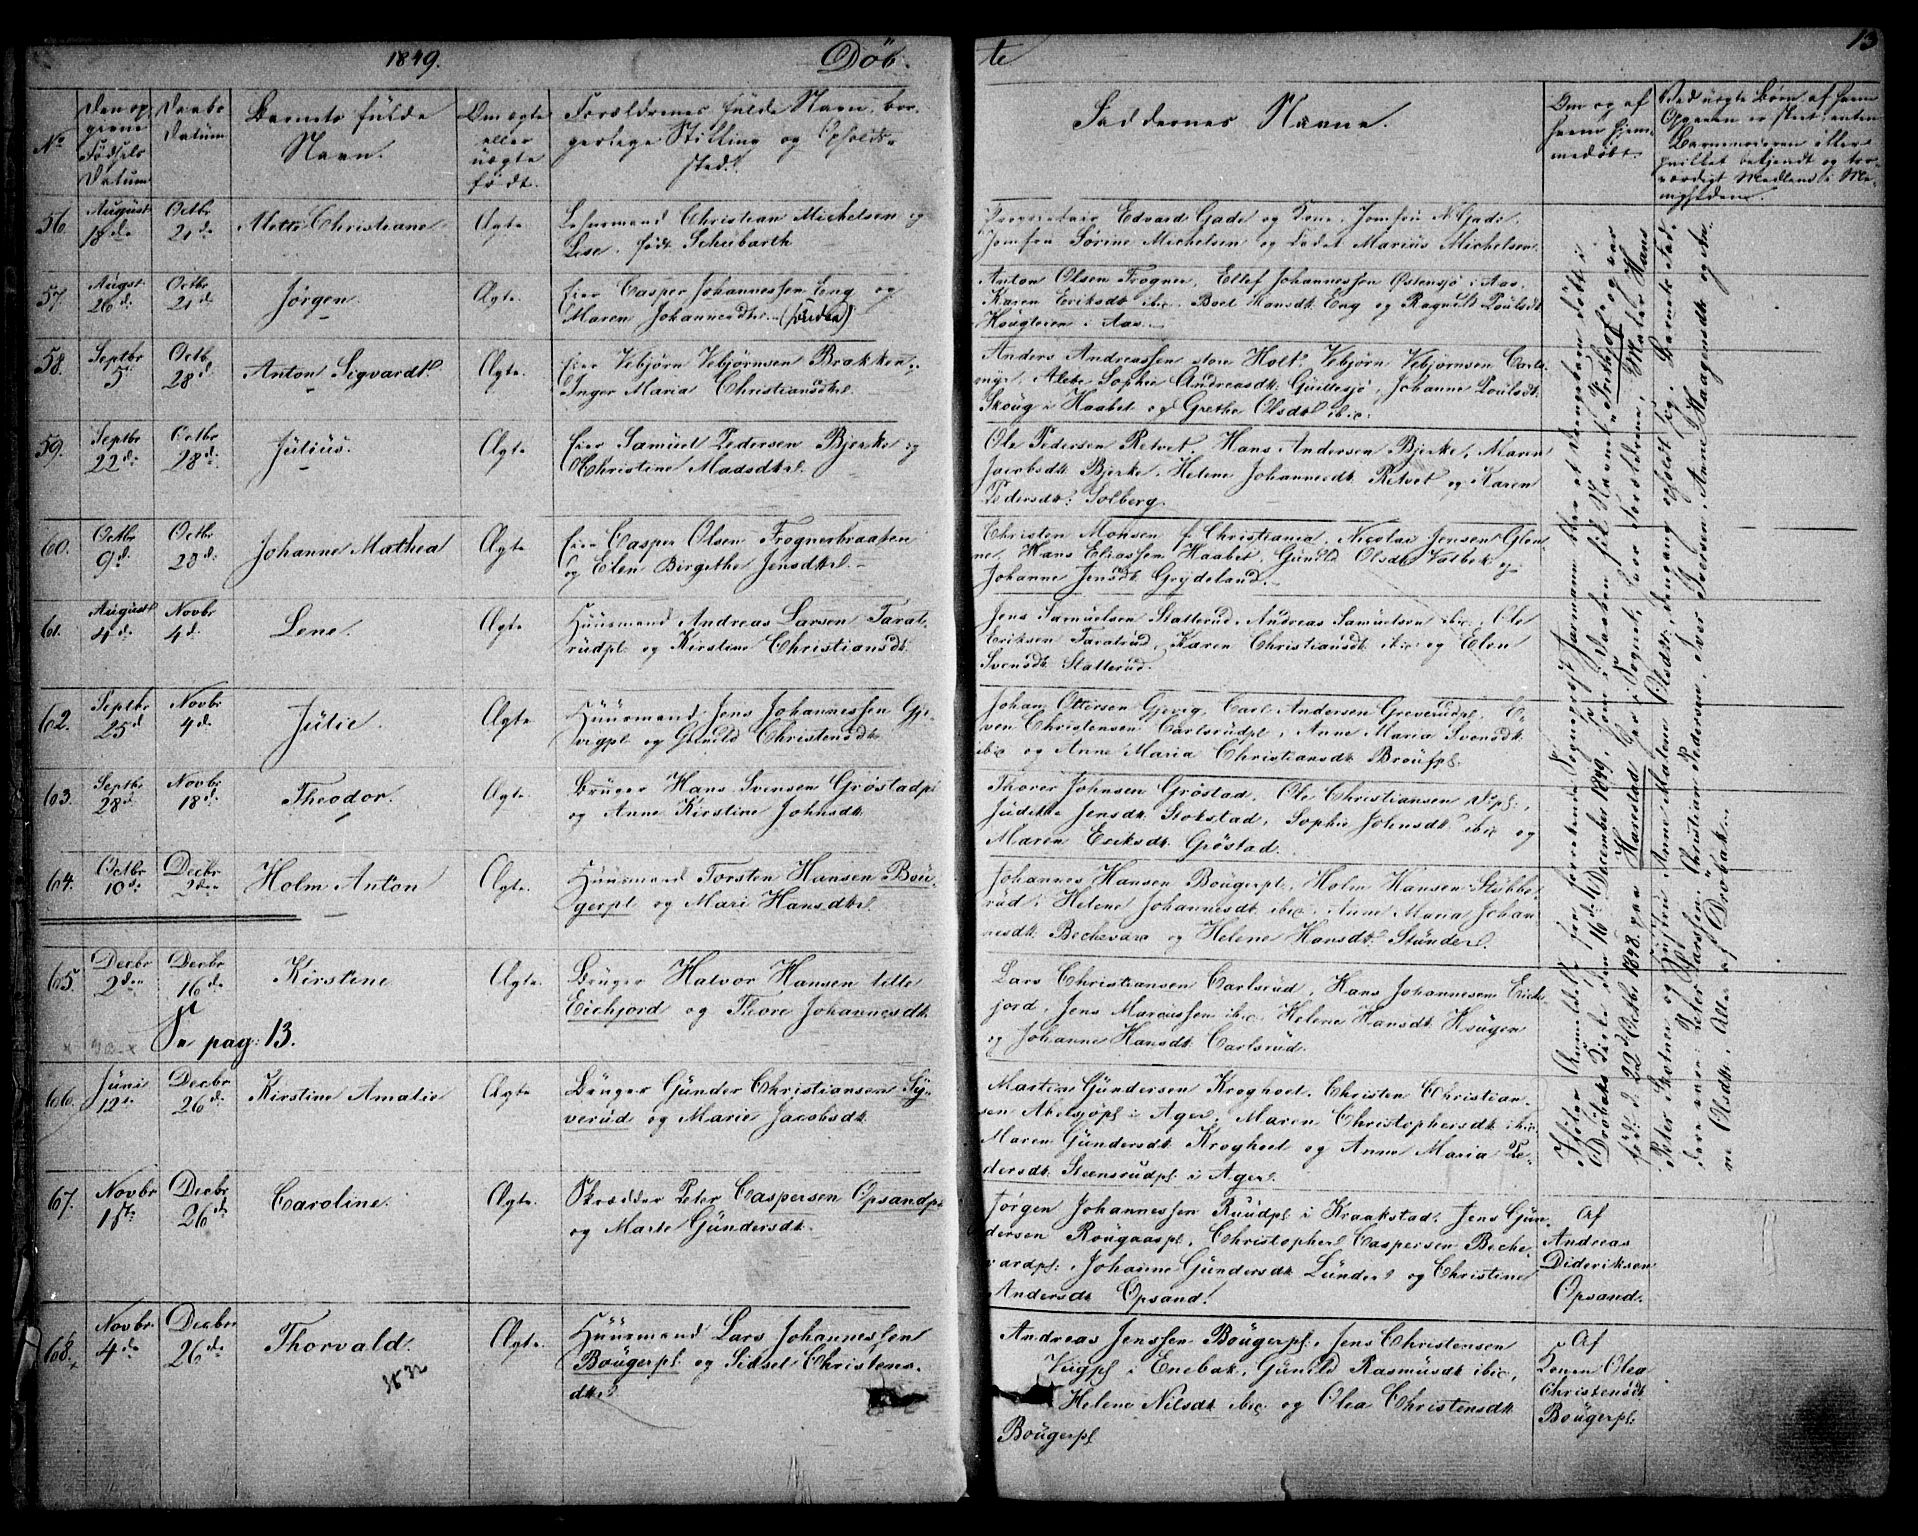 1849.
Döb-
te
13
No
Den op-
givne
Fødsels
Datum
Daabs
Datum.
Barnets fulde
Navn.
Om ægte
eller
uægte
født.
Forældrenes fulde Navn, bor-
gerlige Stilling og Opholds-
sted.
Faddernes Navne.
Om og af
hvem hjem-
medøbt.
Ved uægte Børn, af hvem
Opgaven er skeet enten
Barnemoderen eller
hvilket bekjendt og tro-
værdigt Medlem i Me-
nigheden.
56.
August
18de
Octbr
21de
Mette Christiane
Ægte
Christian Michelsen og
Lise, født Schübarth
Edvard Gade og Kone, Jomfru N. Gade,
Jomfru Sörine Michelsen og Cadet Marius Michelsen.
57.
August
26d.
Octbr
21d
Jörgen.
Ægte.
Eier Casper Johannessen Eng og
Maren Johannesdtr.
Anton Olsen Frogner, Ellef Johannessen Østensjö i Aas,
Karen Eriksdt. ibid. Boel Hansdt. Eng og Ragnild Poulsdt.
Hougteien i Aas.
58.
Septbr
5.
Octb.
28d
Anton Sigvardt.
Ægte.
Eier Vebjörn Vebjörnsen Brekken,
Inger Maria Christiansdtr.
Anders Andreassen Holt, Vebjörn Vebjörnsen Carls-
myr, Alebe Sophie Andreasdt. Gullesjö, Johanne Poulsdt.
Skoug i Haabøl og Grethe Olsdt. ibid.
59.
Septbr
22d.
Octbr
28d.
Julius.
Ægte.
Eier Samuel Pedersen Bjerke og
Christine Madsdtr.
Ole Pedersen Retvet, Hans Andersen Bjerke, Maren
Jacobsdt. Bjerke, Helene Johannesdt. Retvet og Karen
Pedersdt. Solberg.
60.
Octbr
9d.
Octbr
28d.
Johanne Mathea
Ægte
Eier Casper Olsen Frognerbraaten
og Elen Birgithe Jensdtr.
Christen Monsen f Christiania, Nicolai Jensen Glen-
ne, Hans Eliassen Haabøl, Gunild Olsdt. Valbek og
Johanne Jensdt. Grydeland.
61.
August
4de
Novbr
4d.
Lene.
Ægte
Huusmand Andreas Larsen Tarat-
rudpl og Kirstine Christiansdt.
Jens Samuelsen Slatterud, Andreas Samuelsen ibid, Ole
Eriksen Taratrud, Karen Christiansdt. ibid og Elen
Svensdt. Slatterud.
62.
Septbr
25d
Novbr
4d.
Julie.
Ægte.
Huusmand Jens Johannessen Gje-
vigpl og Gunild Christensdt.
Johan Ottersen Gjevig, Carl Andersen Greverudpl, E-
ven Christensen Carlsrudpl, Anne Maria Svensdt.
ibid og Anne Maria Christiansdt. Broufpl.
63.
Septbr
28d.
Novbr
18d.
Theodor.
Ægte.
Bruger Hans Svensen Gröstadpl
og Anne Kirstine Johnsdt.
Thorer Johnsen Gröstad, Ole Christiansen pl.,
Judithe Jensdt. Stokstad, Sophie Johnsdt. ibid og
Maren Eriksdt. Gröstad.
64.
Octbr
10de
Decbr
2den
Holm Anton
Ægte.
Huusmand Torsten Hansen Bou-
gerpl og Mari Hansdtr.
Johannes Hansen Bougerpl, Holm Hansen Stubbe-
rud, Helene Johannesdt. ibid, Anne Maria Johan-
nesdt. Bechevara og Helene Hansdt. Stunderl.
65.
Decbr
2den
Decbr
16de
Kirstine
Ægte.
Bruger Halvor Hansen lille
Eichjord og Thore Johannesdt.
Lars Christiansen Carlsrud, Hans Johannesen Eich-
jord, Jens Marcussen ibid, Helene Hansdt. Haugen
og Johanne Hansdt. Carlsrud.
Se pag: 13.
66.
Juni
12te
Decbr
26d.
Kirstine Amalie
Ægte
Bruger Gunder Christiansen Sy-
verud og Marie Jacobsdt.
Martin Gundersen Kroghoel, Christen Christian-
sen Abelsjöpl i Ager, Maren Christophersdt. ibid,
Maren Gundersdt. Kroghoel og Anne Maria Pe-
dersdt. Steensrudpl i Ager.
67.
Novbr
1ste
Decbr
26de
Caroline.
Ægte.
Skrædder Peter Caspersen Opsandpl
og Marte Gundersdt.
Jörgen Johannessen Ruudpl i Kraakstad, Jens Gun-
dersen Rougaaspl, Christopher Caspersen Beche-
vardpl., Johanne Gundersdt. Lunder og Christine
Andersdt. Opsand.
Af
Andreas
Dideriksen
Opsand.
68.
Novbr
4de
Decbr
26de
Thorvald.
Ægte.
Huusmand Lars Johannessen
Bougerpl. og Sidsel Christens-
dtr.
Andreas Jenssen Bougerpl., Jens Christensen
Vugpl i Enebak, Gunild Rasmusdt. ibid,
Helene Nilsdt. ibid. og Olea Christensdt.
Bougerpl.
Af
Konen Olea
Christensdt.
Bougerpl.
Ifölge Anmeldelse fra forrettende Sogneprest Jarmann blev et Drengebarn døbt i
Dröbaks Kirke den 16d. December 1849, som i Daaben fik Navnet "Frithjof" og var
föd d. 22d Octbr 1848 paa Harestad her i Sognet, hvor Forældrene, Maler Hans
Peter Skotner og Hustru Anne Malene Olsdt., dengang opholdt sig. Barnets Fad-
dere vare: Peter Larssen, Christian Pedersen, Iver Iversen, Anne Haagensdt. og An-
ne Olsdt., Alle af Dröbak.